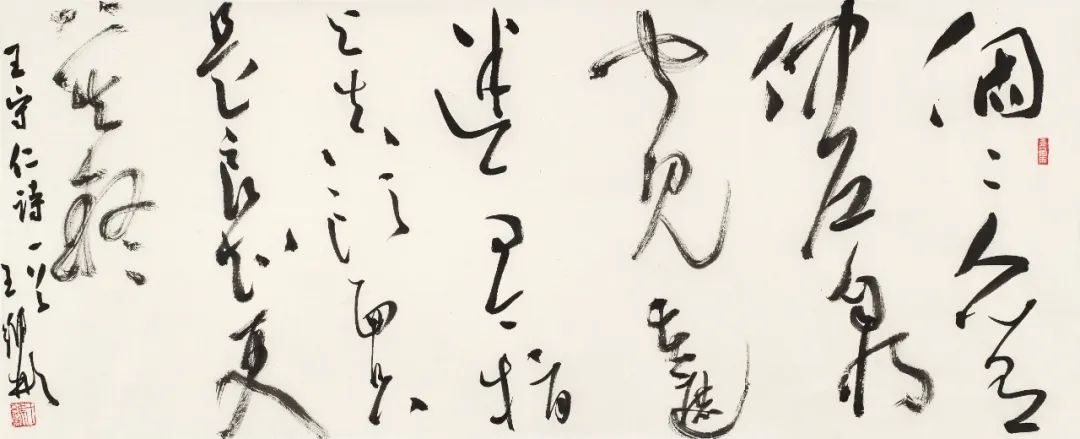 個〻人心有
仲尼自將
聞見苦遮
迷而今指
与真頭面只
是良知更
莫疑
王守仁诗一首 王